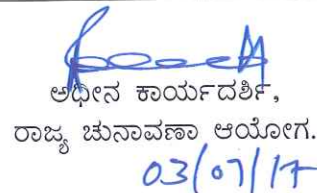 ಅಧೀನ ಕಾರ್ಯದರ್ಶಿ,
ರಾಜ್ಯ ಚುನಾವಣಾ ಆಯೋಗ.
03/07/17